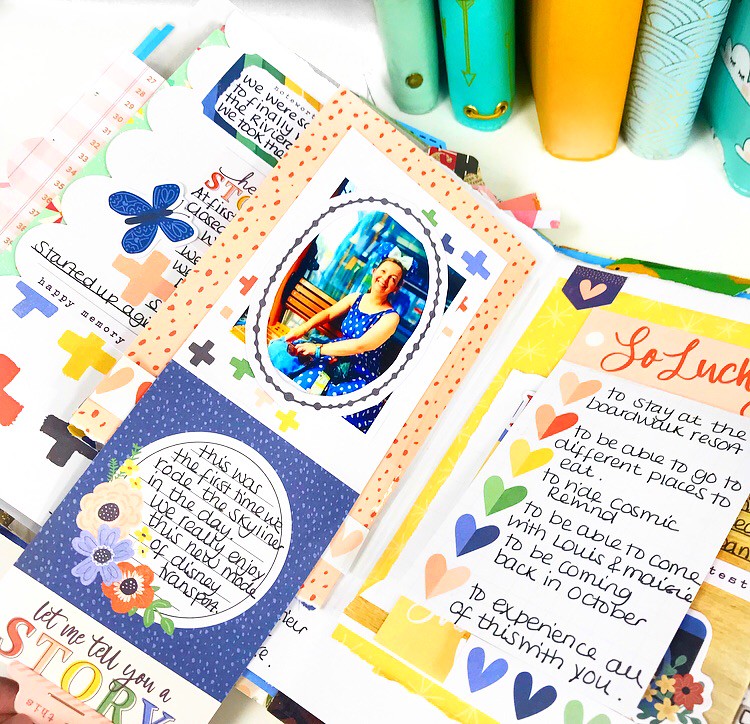 27
28
29
30
31
32
33
34
35
36
37
noteworthy
we were so
to finally
the Riviera
we took that
STO
At first
closed
Started up again
happy memory
this was
the first time we
rode the skyliner
in the day
we really enjoy
this new mode
of disney
transport
let me tell you a
STORY
this
So Lucky
to stay at the
boardwalk resort
to be able to go to
different places to
eat.
to ride cosmic
Remind
to be able to come
with Louis & maisie
to be coming
back in October
to experience all
of this with you.